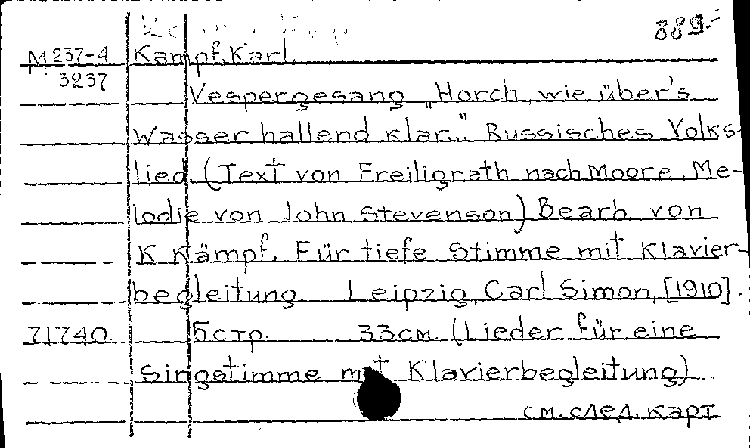 889-
M 237-4 Kämpf, Karl.
3237
Vespergesang „Horch, wie über's
Wasser hallend klar." Russisches Volks-
lied (Text von Freiligrath nach Moore, Me-
lodie von John Stevenson) Bearb. von
K. Kämpf. Für tiefe Stimme mit Klavier-
begleitung. Leipzig, Carl Simon, [1910].
71740 5 стр. 33 см. (Lieder für eine
Singstimme mit Klavierbegleitung)
см. след. карт